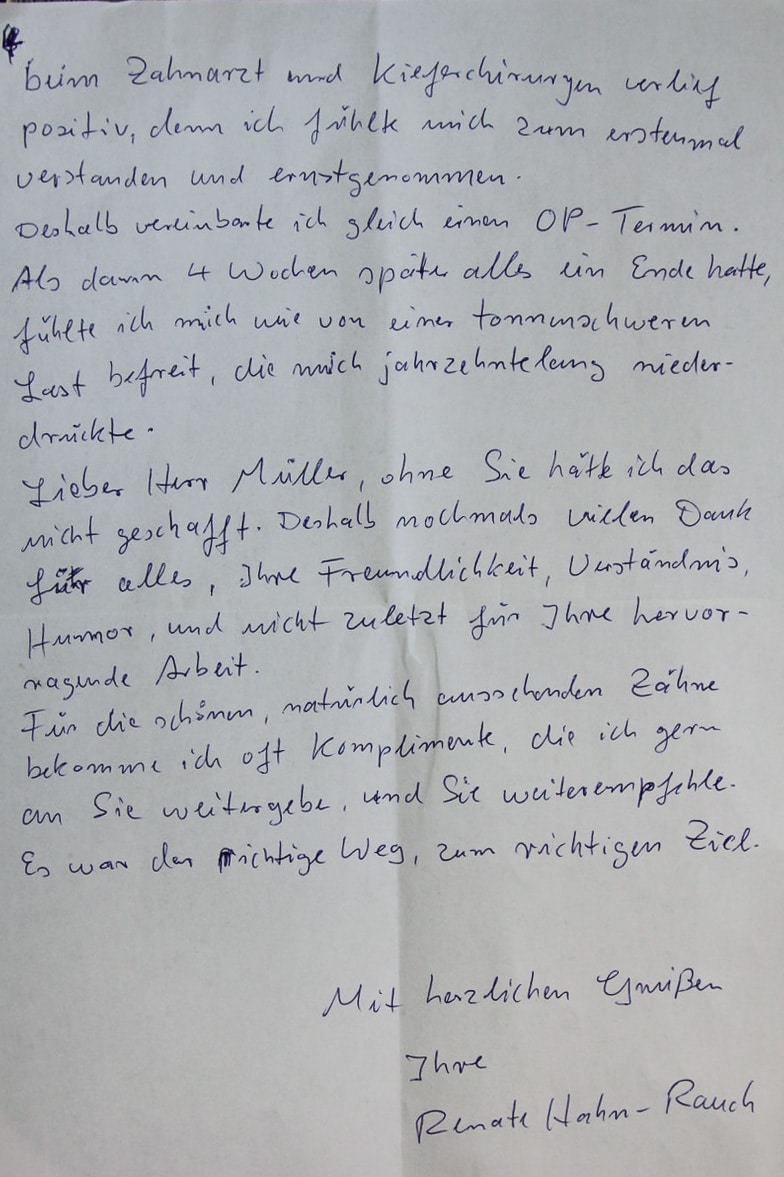 beim Zahnarzt und Kieferchirurgen verlief
positiv, denn ich fühlte mich zum erstenmal
verstanden und ernstgenommen.
Deshalb vereinbarte ich gleich einen OP-Termin.
Als dann 4 Wochen später alles ein Ende hatte,
fühlte ich mich wie von einer tonnenschweren
Last befreit, die mich jahrzehntelang nieder-
drückte.
Lieber Herr Müller, ohne Sie hätte ich das
nicht geschafft. Deshalb nochmals vielen Dank
für alles, Ihre Freundlichkeit, Verständnis,
Humor, und nicht zuletzt für Ihre hervor-
ragende Arbeit.
Für die schönen, natürlich aussehenden Zähne
bekomme ich oft Komplimente, die ich gern
an Sie weitergebe, und Sie weiterempfehle.
Es war der richtige Weg, zum richtigen Ziel.
Mit herzlichen Grüßen
Ihre
Renate Hahn-Rauch